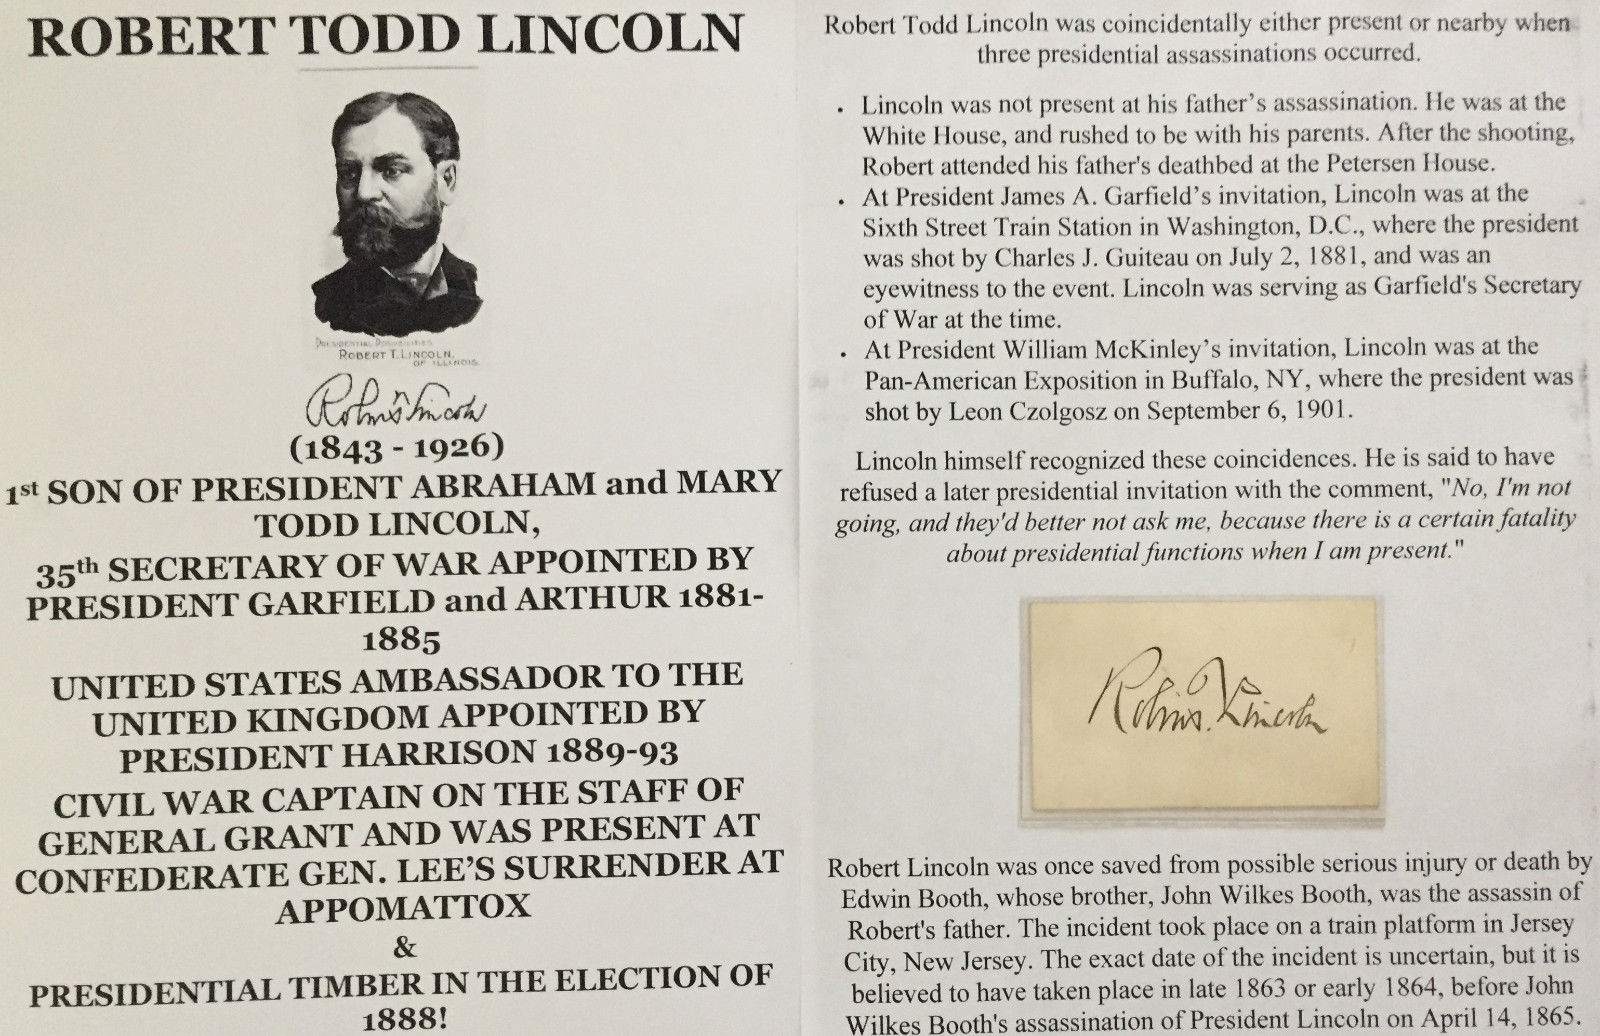 ROBERT TODD LINCOLN
PRESIDENTIAL POSSIBILITIES
ROBERT T. LINCOLN,
OF ILLINOIS.
Robt T. Lincoln
(1843 - 1926)
1st SON OF PRESIDENT ABRAHAM and MARY
TODD LINCOLN,
35th SECRETARY OF WAR APPOINTED BY
PRESIDENT GARFIELD and ARTHUR 1881-
1885
UNITED STATES AMBASSADOR TO THE
UNITED KINGDOM APPOINTED BY
PRESIDENT HARRISON 1889-93
CIVIL WAR CAPTAIN ON THE STAFF OF
GENERAL GRANT AND WAS PRESENT AT
CONFEDERATE GEN. LEE'S SURRENDER AT
APPOMATTOX
&
PRESIDENTIAL TIMBER IN THE ELECTION OF
1888!
Robert Todd Lincoln was coincidentally either present or nearby when
three presidential assassinations occurred.
• Lincoln was not present at his father's assassination. He was at the
White House, and rushed to be with his parents. After the shooting,
Robert attended his father's deathbed at the Petersen House.
• At President James A. Garfield's invitation, Lincoln was at the
Sixth Street Train Station in Washington, D.C., where the president
was shot by Charles J. Guiteau on July 2, 1881, and was an
eyewitness to the event. Lincoln was serving as Garfield's Secretary
of War at the time.
• At President William McKinley's invitation, Lincoln was at the
Pan-American Exposition in Buffalo, NY, where the president was
shot by Leon Czolgosz on September 6, 1901.
Lincoln himself recognized these coincidences. He is said to have
refused a later presidential invitation with the comment, "No, I'm not
going, and they'd better not ask me, because there is a certain fatality
about presidential functions when I am present."
Robt T. Lincoln
Robert Lincoln was once saved from possible serious injury or death by
Edwin Booth, whose brother, John Wilkes Booth, was the assassin of
Robert's father. The incident took place on a train platform in Jersey
City, New Jersey. The exact date of the incident is uncertain, but it is
believed to have taken place in late 1863 or early 1864, before John
Wilkes Booth's assassination of President Lincoln on April 14, 1865.